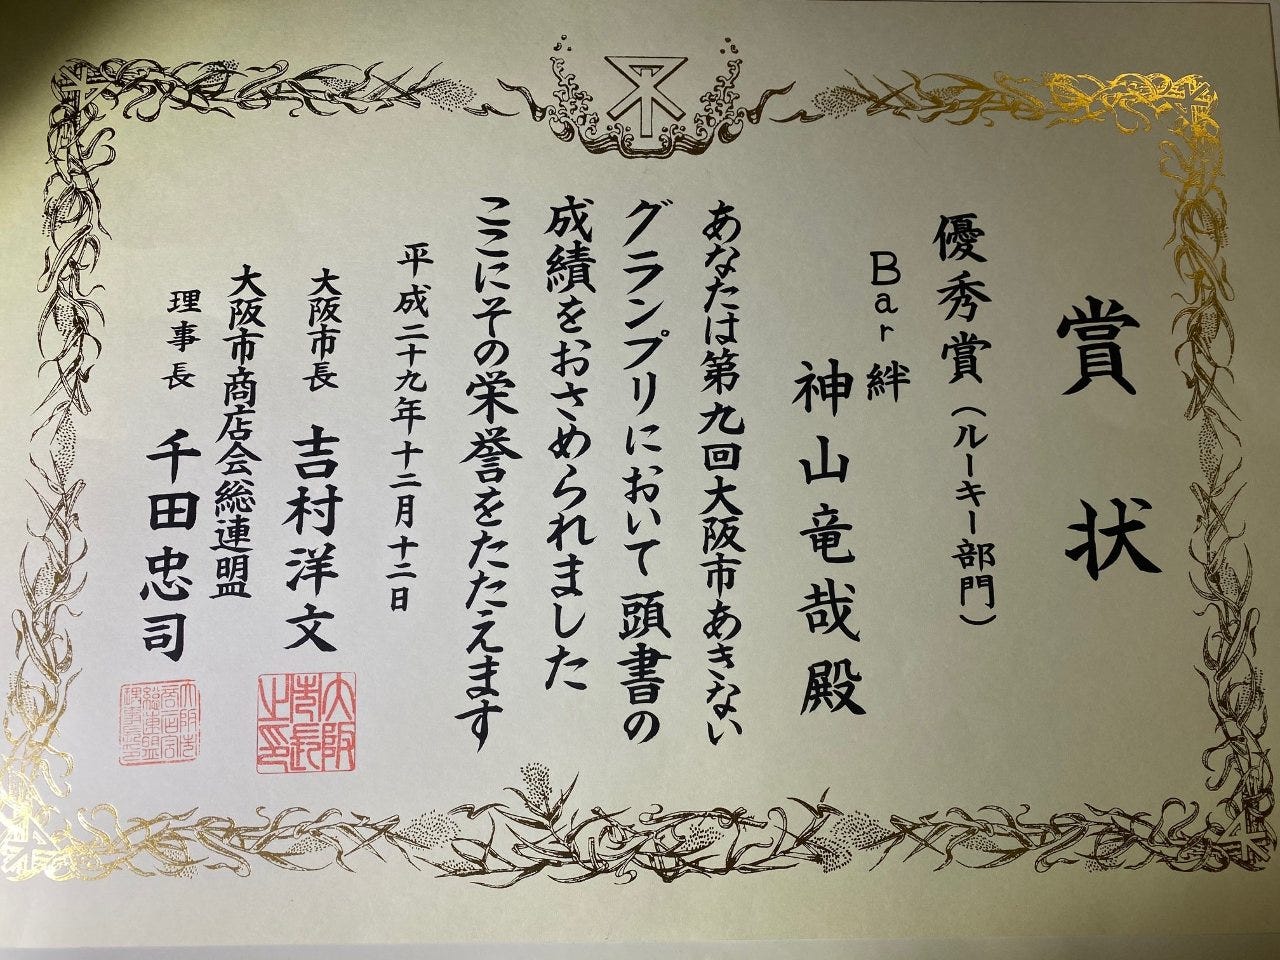 賞状
優秀賞（ルーキー部門）
Bar 絆
神山竜哉殿
あなたは第九回大阪市あきない
グランプリにおいて頭書の
成績をおさめられました
ここにその栄誉をたたえます
平成二十九年十二月十二日
大阪市長 吉村洋文
大阪市長之印
大阪市商店会総連盟
理事長 千田忠司